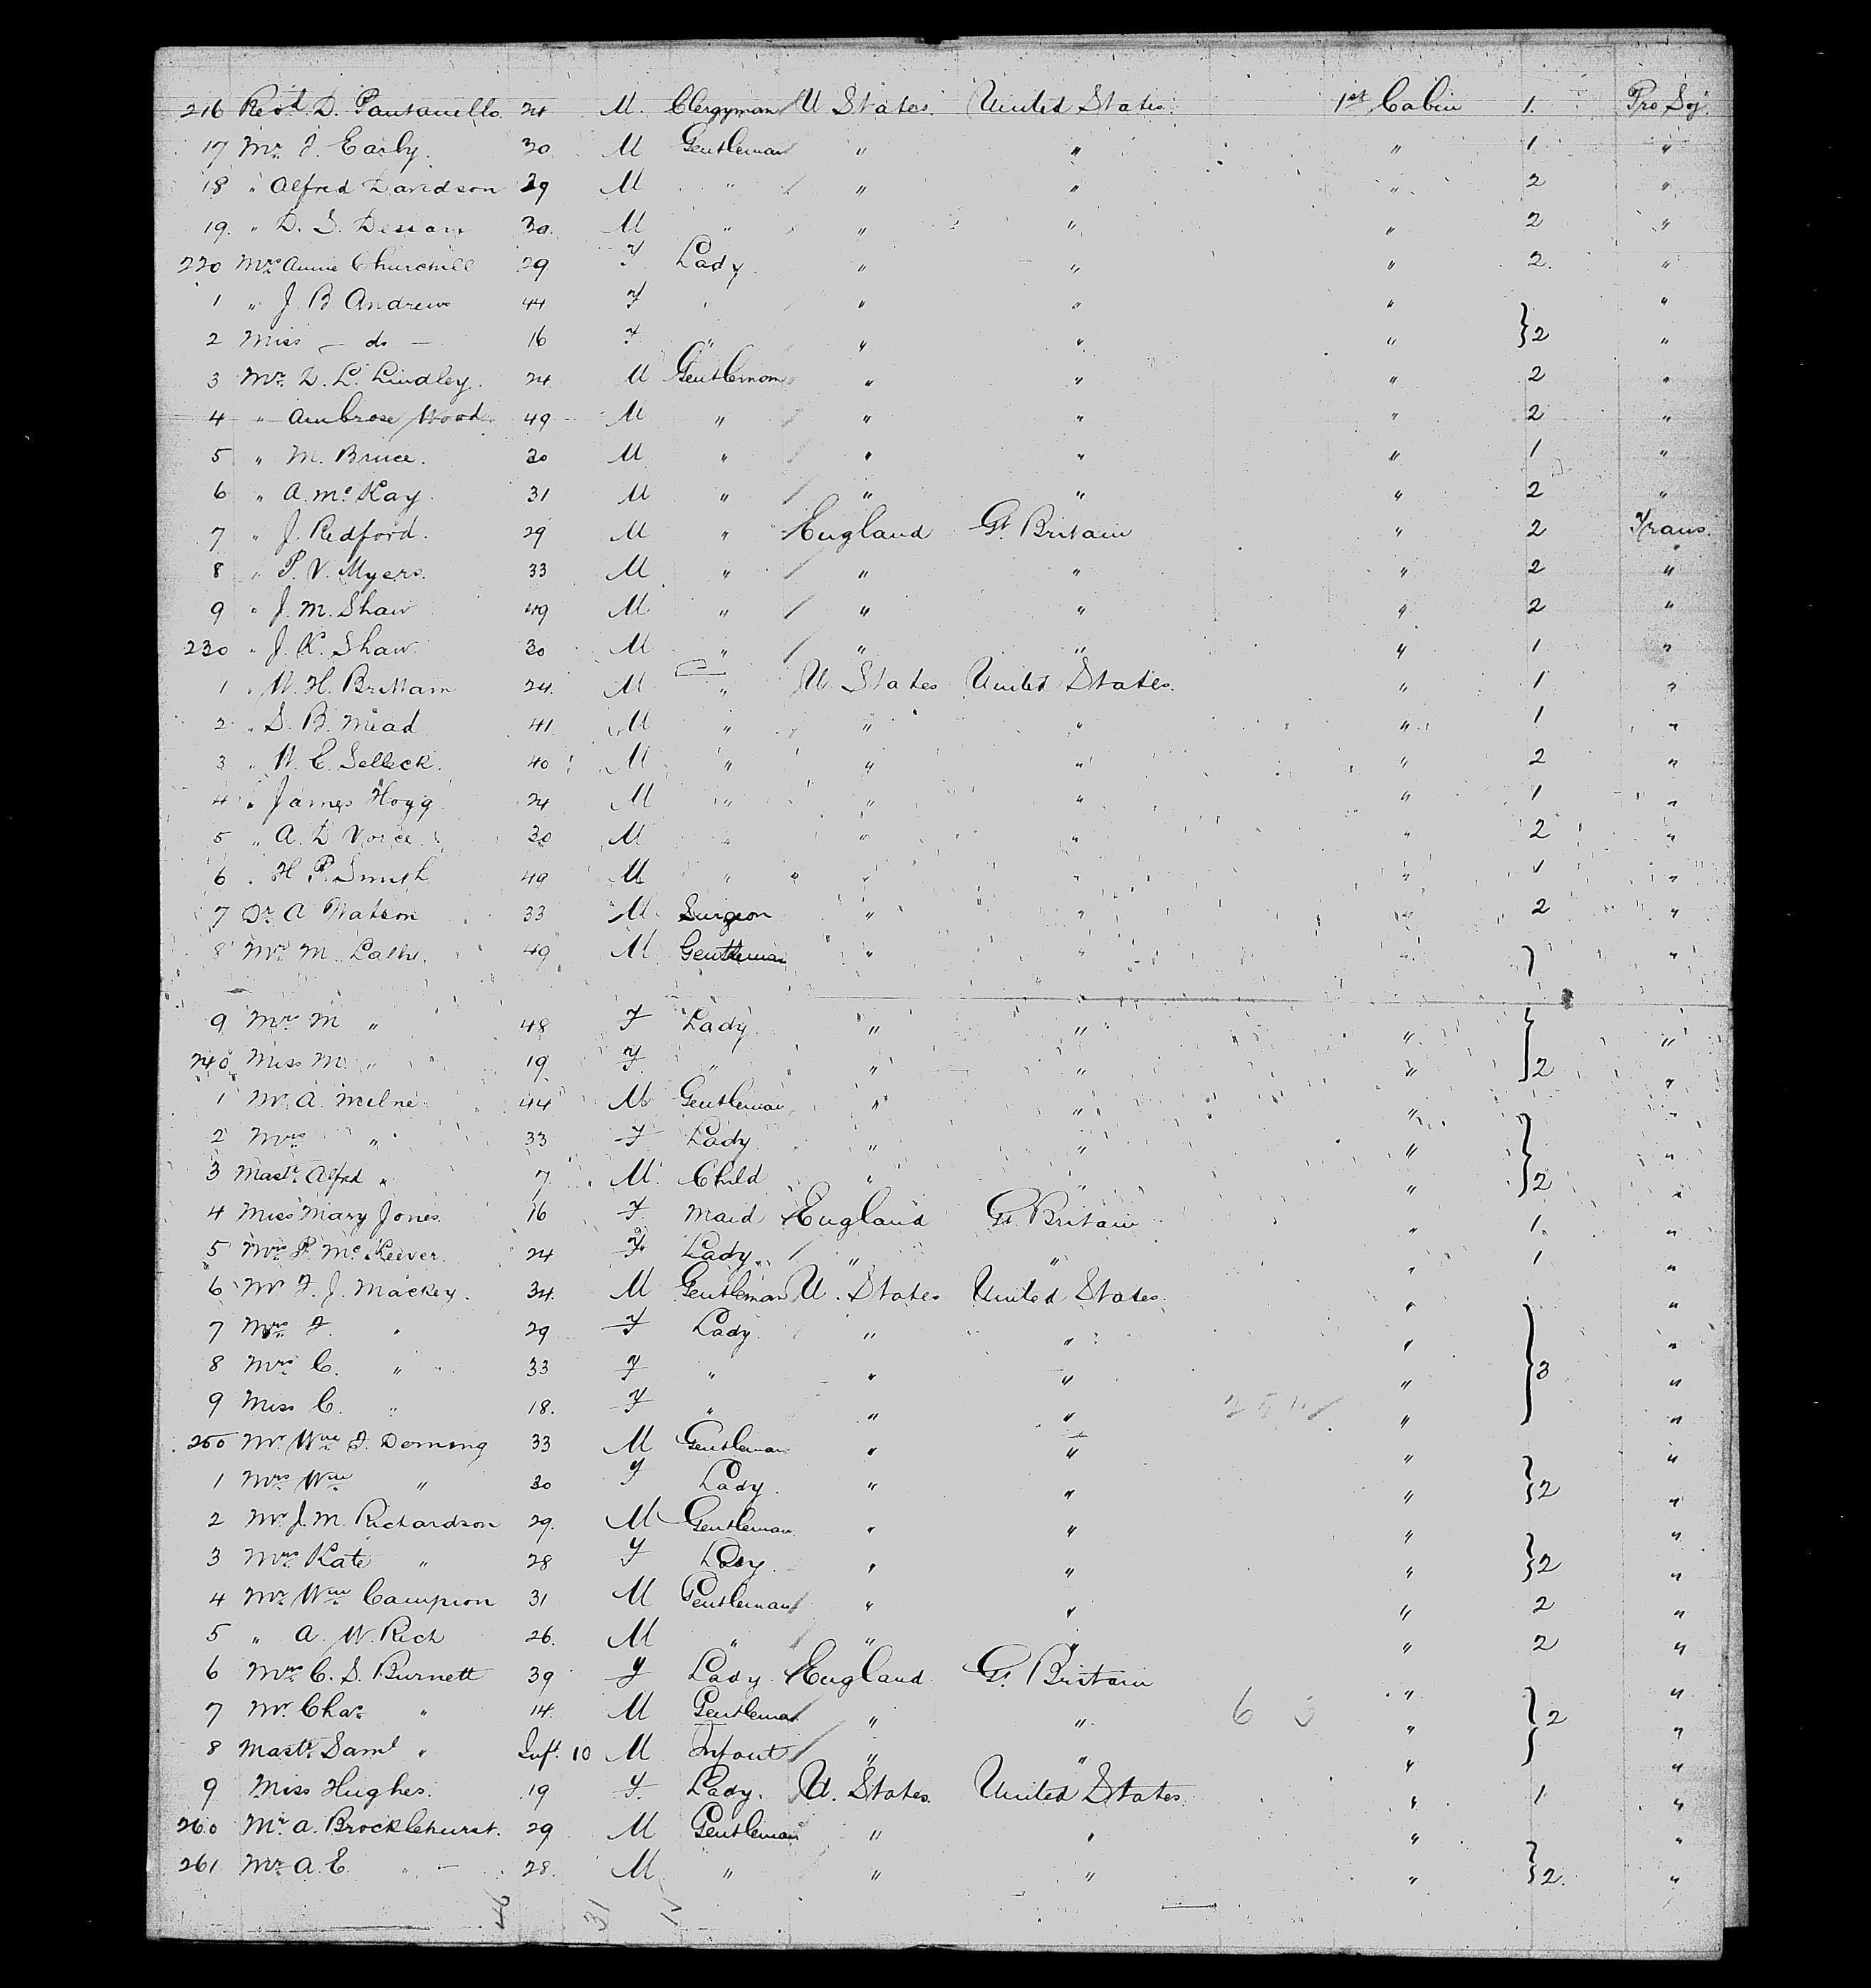 216 Revd. D. Pantanello. 24 M. Clergyman U States. United States. 1st Cabin 1. Pro Soj.
17 Mr. J. Early. 30 M Gentleman " " " 1 "
18 " Alfred Davidson 29 M " " " " 2 "
19. " D. S. 30. M " " " " 2 "
220 Mrs Annie Churchill 29 F Lady. " " " 2. "
1 " J. B Andrews 44 F " " " " "
2 Miss — do — 16 F " " " " } 2 "
3 Mr. D. L. Lindley. 24 M Gentleman " " " 2 "
4 " Ambrose Wood 49 M " " " " 2 "
5 " M. Bruce. 30 M " " " " 1 "
6 " A. McKay. 31 M " " " " 2 "
7 " J. Redford. 29 M " England Gt. Britain " 2 Trans.
8 " P. V. Myers. 33 M " " " " 2 "
9 " J. M. Shaw 49 M " " " " 2 "
230 " J. K. Shaw. 30 M " " " " 1 "
1 " W. H. Brittain 24. M " U. States United States. " 1 "
2 " S. B. Mead 41 M " " " " 1 "
3 " W. C. Selleck. 40 M " " " " 2 "
4 " James Hogg 24 M " " " " 1 "
5 " A. D Voice. 30 M " " " " 2 "
6 " H P. Smith 49 M " " " " 1 "
7 Dr. A Watson 33 M. Surgeon " " " 2 "
8 Mr. M. 49 M Gentleman " " " } "
9 Mrs. M " 48 F Lady " " " "
240 Miss M. " 19 F. " " " " } 2 "
1 Mr. A. Milne 44 M Gentleman " " " "
2 Mrs " 33 F Lady " " " "
3 Mastr. Alfred " 7. M. Child " " " } 2 "
4 Miss Mary Jones. 16 F. Maid England Gt. Britain " 1. "
5 Mrs P. McKeever. 24 F. Lady. " " " 1 "
6 Mr F. J. Mackey. 34. M Gentleman U. States United States. " "
7 Mrs. F. " 29 F Lady. " " " "
8 Mrs. C. " 33 F " " " " } 3 "
9 Miss C. " 18. F " " " " "
250 Mr Wm J. Doming 33 M Gentleman " " " "
1 Mrs Wm " 30 F Lady. " " " } 2 "
2 Mr J. M. Richardson 29. M Gentleman " " " "
3 Mrs. Kate " 28 F Lady. " " " } 2 "
4 Mr. Wm Campion 31 M Gentleman " " " 2 "
5 " A. W. Rich 26. M " " " " 2 "
6 Mrs. C. S. Burnett 39 F Lady. England Gt. Britain " "
7 Mr. Chas. " 14. M Gentleman " " 6 " } 2 "
8 Mastr. Saml " Inft. 10 M Infant " " " "
9 Miss Hughes. 19 F. Lady. U. States. United States. " 1 "
260 Mr A. Brocklehurst. 29 M Gentleman " " " "
261 Mr. A. E. " 28. M " " " " } 2. "
46 31